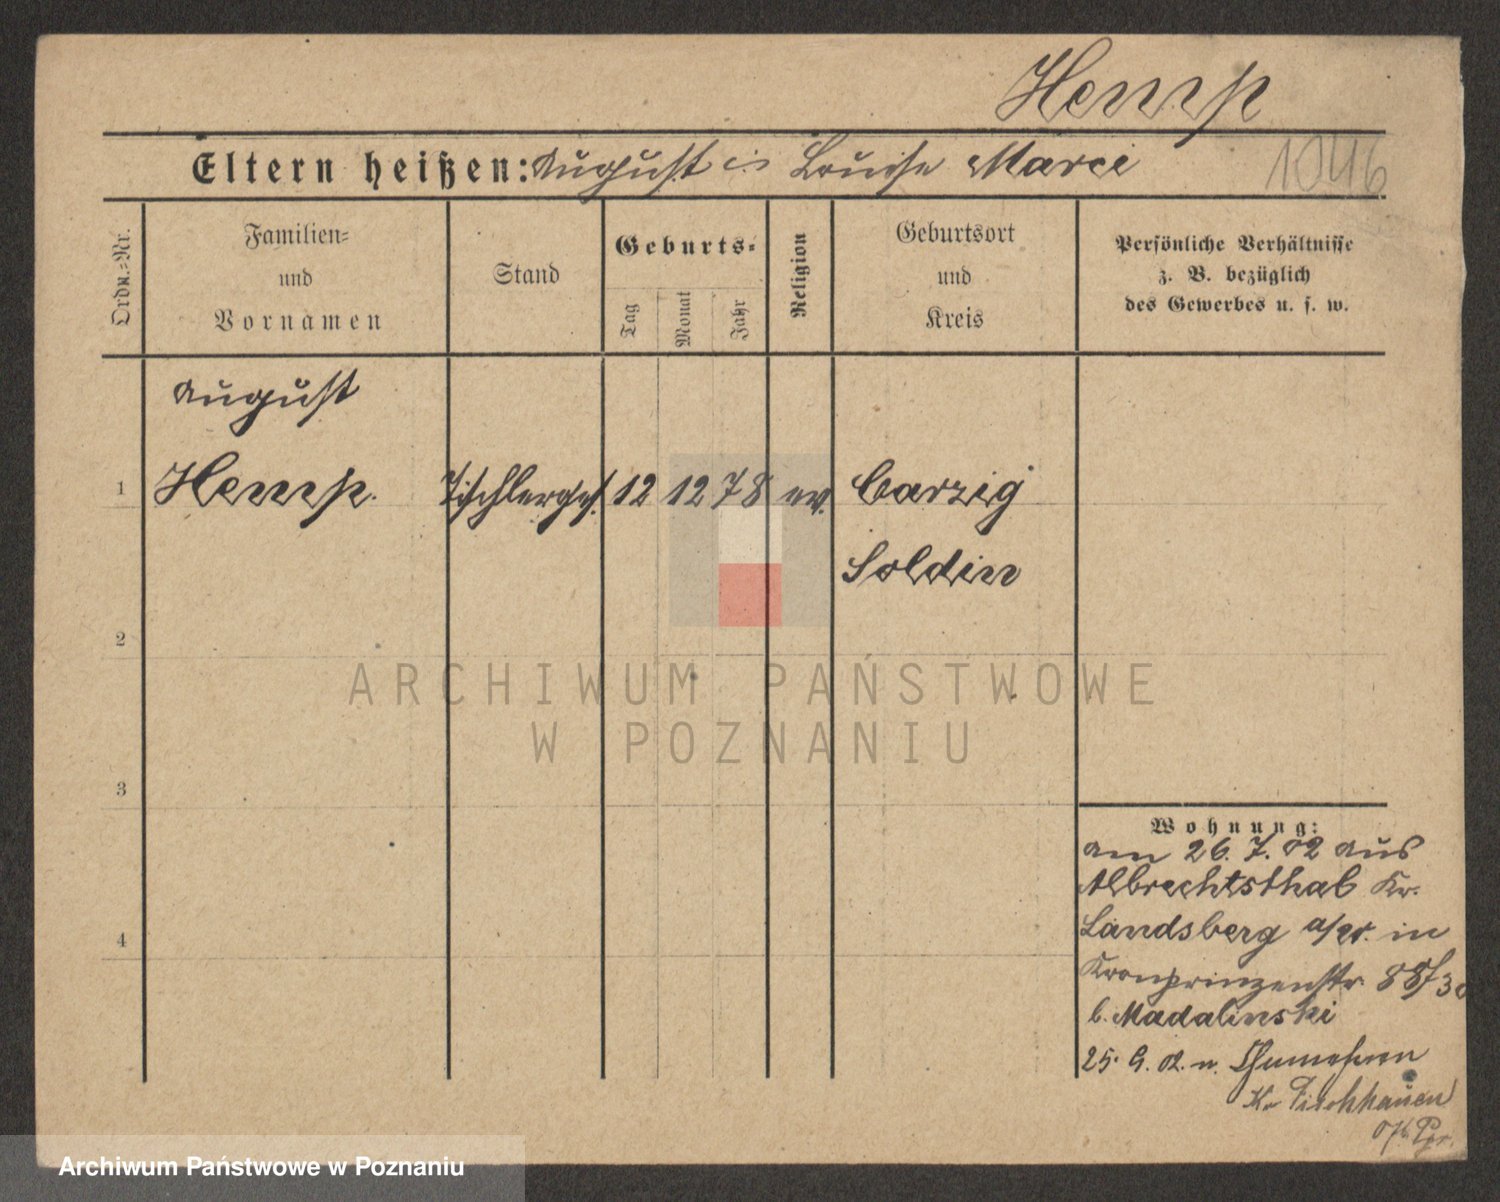 Hemp
Eltern heißen: August u Louise Marci
1046
Ordn.-Nr.
Familien-
und
Vornamen
Stand
Geburts-
Tag
Monat
Jahr
Religion
Geburtsort
und
Kreis
Persönliche Verhältnisse
z. B. bezüglich
des Gewerbes u. s. w.
August
1 Hemp. Tischlerges. 12 12 78 ev. Carzig
Soldin
2
3
4
Wohnung:
am 26.7.02 aus
Albrechtsthal Kr.
Landsberg a/W. in
Kronprinzenstr. 88
b. Madalinski
25. 9. 02. n.
Kr Fischhausen
O/Pr.
ARCHIWUM PAŃSTWOWE
W POZNANIU
Archiwum Państwowe w Poznaniu